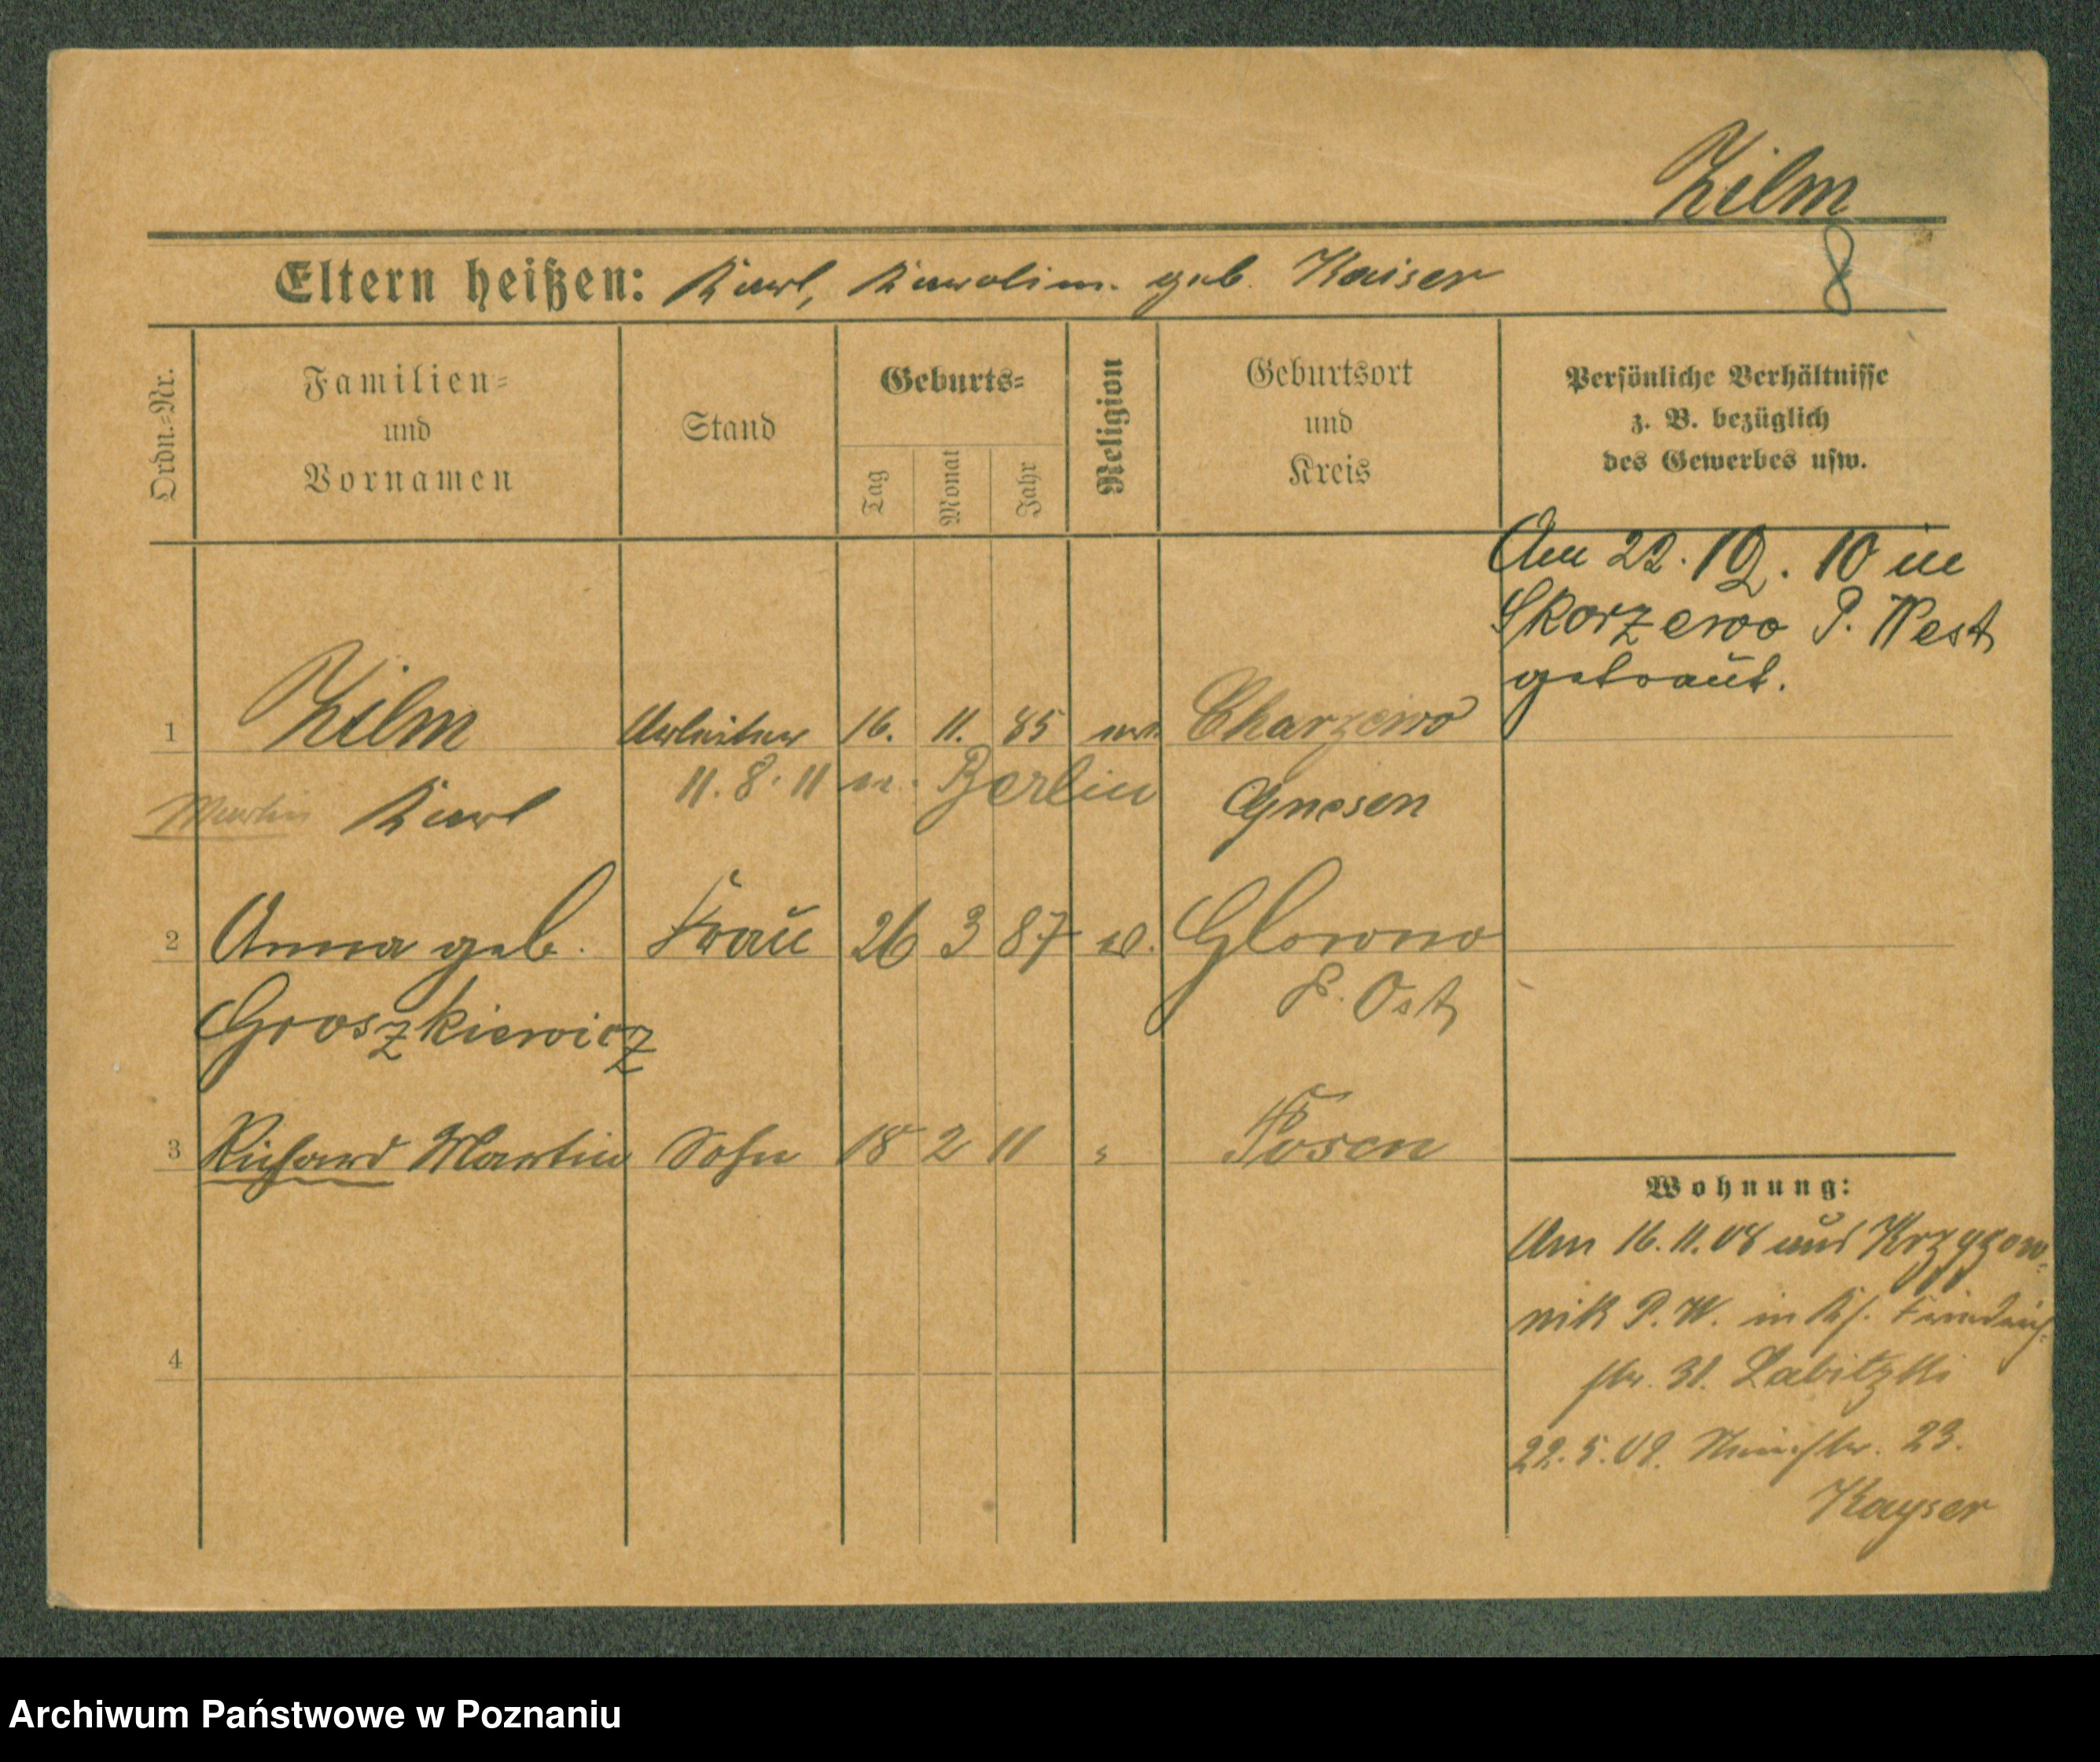 Zilm
8
Eltern heißen: Karl, Karolin. geb. Kaiser
Ordn.-Nr.
Familien-
und
Vornamen
Stand
Geburts-
Tag
Monat
Jahr
Religion
Geburtsort
und
Kreis
Persönliche Verhältnisse
z. B. bezüglich
des Gewerbes usw.
Am 22. 12. 10 in
Skorzewo P. West
getraut.
1 Zilm Arbeiter 16. 11. 85 Charzewo
Martin Karl 11. 8. 11 n. Berlin Gnesen
2 Anna geb. Frau 26 3 87 Glowno
Groszkiewicz P. Ost
3 Richard Martin Sohn 18 2 11 " Posen
4
Wohnung:
Am 16. 11. 08 aus Krzyzow-
nik P. W. in Friedrich-
str. 31. Labitzki
22. 5. 09. 23.
Kayser
Archiwum Państwowe w Poznaniu